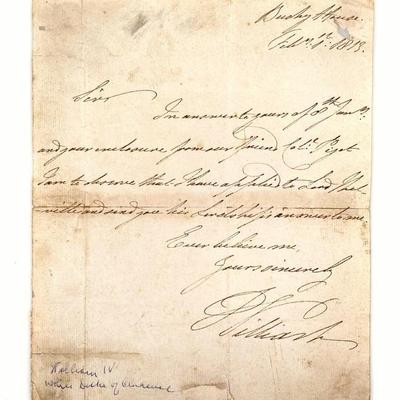 Bushy House.
Feby. 1st. 1813.
Sir
In answer to yours of 8th Jany.
and your enclosure from our Friend Coll. Pigot
I am to observe that I have applied to Lord Mel-
ville and send you his Lordship's answer to me
Ever believe me,
Yours sincerely
William
William IV
when Duke of Clarence